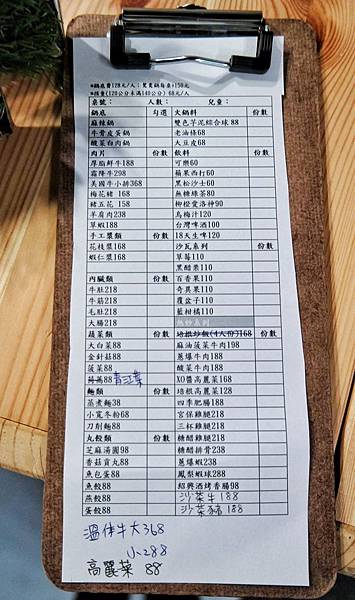 *鍋底費128元/人；鴛鴦鍋每桌+150元
*孩童(120公分未滿140公分) 68元/人
桌號： 人數： 兒童：
鍋底 勾選 火鍋料 份數
麻辣鍋 雙色芋泥綜合球88
牛骨皮蛋鍋 老油條68
酸菜白肉鍋 大豆皮68
肉片 份數 飲料 份數
厚脂鮮牛188 可樂60
霜降牛298 蘋果西打60
美國牛小排368 黑松沙士60
梅花豬 168 無糖綠茶80
豬五花 158 柳橙愛洛神90
羊肩肉238 烏梅汁120
草蝦188 台灣啤酒100
手工漿類 份數 18天生啤120
花枝漿168 沙瓦系列 份數
蝦仁漿168 草莓110
黑醋栗110
內臟類 份數 百香果110
牛肚218 奇異果110
牛筋218 覆盆子110
毛肚218 藍柑橘110
大腸218 熱炒系列
蔬菜類 份數 培根炒飯(4人份)168 份數
大白菜88 麻油菠菜牛肉198
金針菇88 蔥爆牛肉188
菠菜88 酸菜牛肉188
茼蒿88 青江菜 XO醬高麗菜168
麵類 份數 培根高麗菜128
蒸煮麵38 四季肥腸188
小寬冬粉68 宮保雞腿218
刀削麵88 三杯雞腿218
丸餃類 份數 糖醋雞腿218
芝麻湯圓98 糖醋排骨238
香菇貢丸88 蔥爆蝦238
魚包蛋88 鳳梨蝦球288
魚餃88 紹興酒烤香腸98
燕餃88 沙茶牛188
蛋餃88 沙茶豬188
溫体牛大368
小288
高麗菜 88